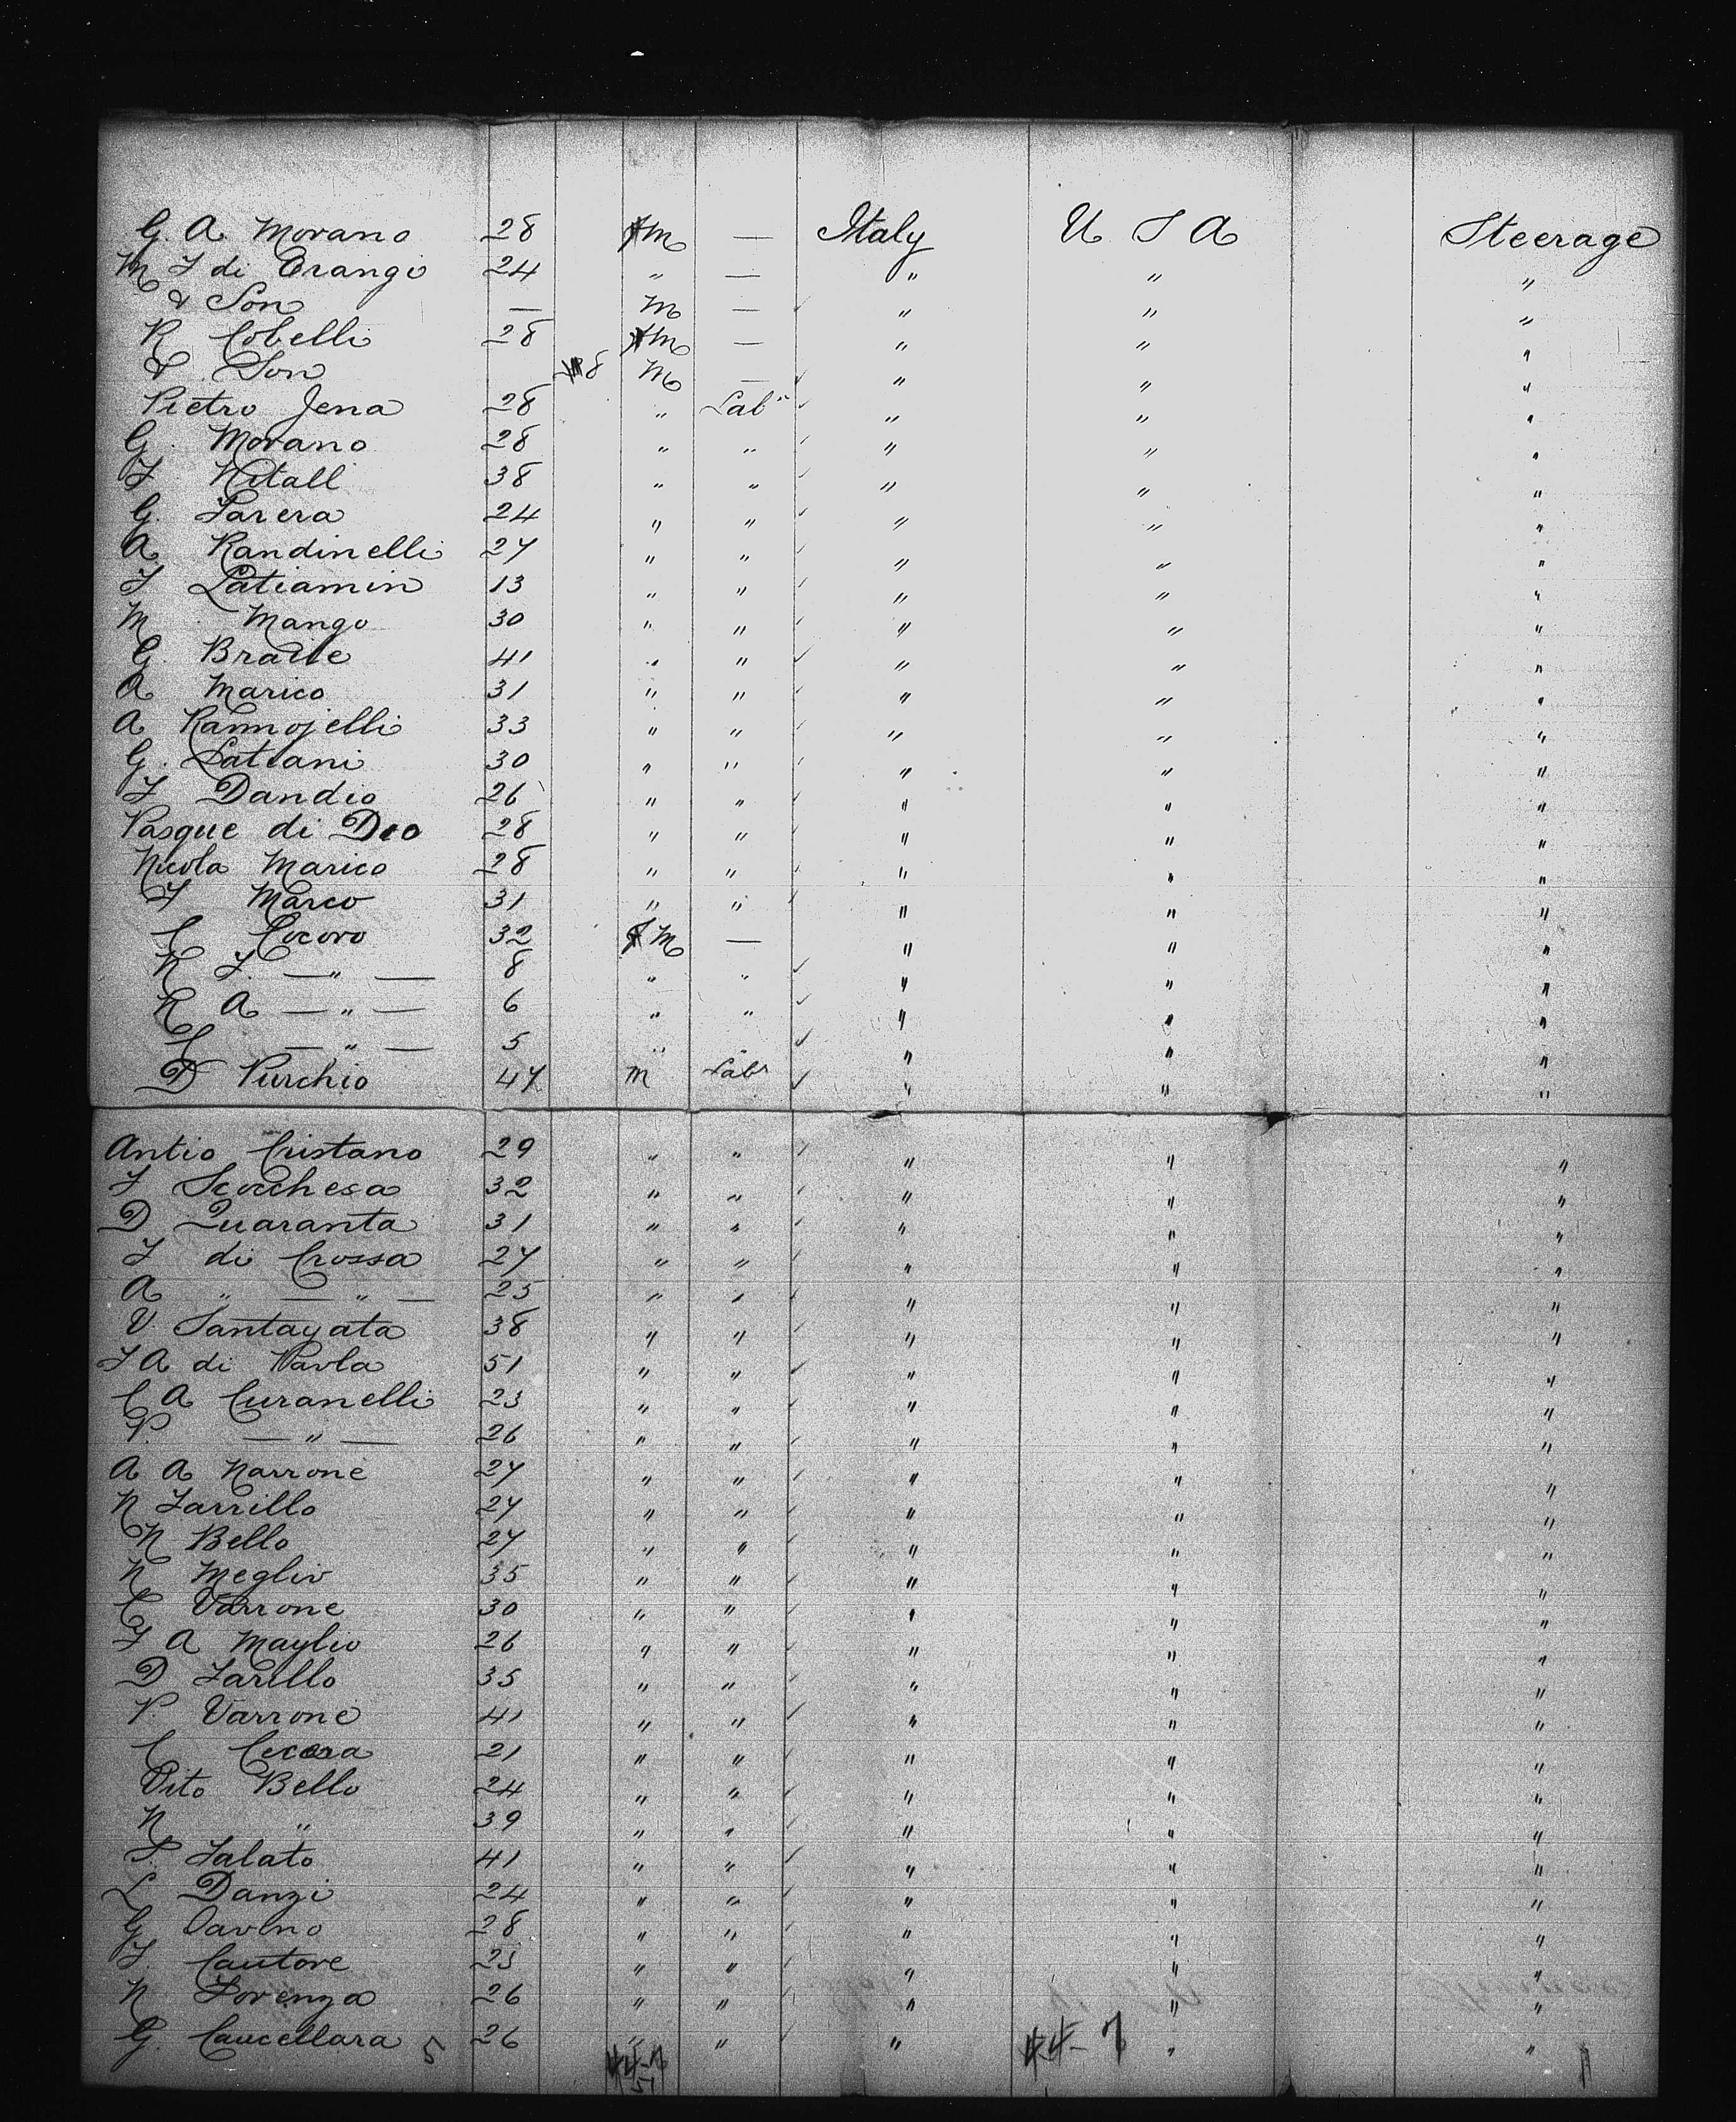 G. A Morano 28 fm — Italy U S A Steerage
M F di Orangio 24 " — " " "
& Son — m — " " "
R Cobelli 28 fm — " " "
& Son 8 m — " " "
Pietro Jena 28 " Labr " " "
G. Morano 28 " " " " "
F Vitall 38 " " " " "
G. Sarera 24 " " " " "
A Randinelli 27 " " " " "
F Latiamin 13 " " " " "
M Mango 30 " " " " "
G. Braile 41 " " " " "
A Marico 31 " " " " "
A Rannojelli 33 " " " " "
G. Latiani 30 " " " " "
F Dandio 26 " " " " "
Pasque di Dio 28 " " " " "
Nicola Marico 28 " " " " "
F Marco 31 " " " " "
C Cocoro 32 f m — " " "
R F. — " — 8 " " " " "
R A — " — 6 " " " " "
C — " — 5 " " " " "
D Purchio 47 m Labr " " "
Antio Cristano 29 " " " " "
F Scocchesa 32 " " " " "
D Quaranta 31 " " " " "
F di Crossa 27 " " " " "
A " — " — 25 " " " " "
V Santagata 38 " " " " "
F A di Paola 51 " " " " "
C A Curanelli 23 " " " " "
P. — " — 26 " " " " "
A A Narrone 27 " " " " "
N Zarrillo 27 " " " " "
N Bello 27 " " " " "
N Meglio 35 " " " " "
C Varrone 30 " " " " "
F A Maglio 26 " " " " "
D Zarillo 35 " " " " "
P. Varrone 41 " " " " "
C Cecora 21 " " " " "
Vito Bello 24 " " " " "
N " 39 " " " " "
F. Salato 41 " " " " "
L Danzi 24 " " " " "
G Davino 28 " " " " "
F. Cautore 23 " " " " "
N Lorenza 26 " " " " "
G. Caucellara 5 26 " " " 44-7 " "
44-7
51